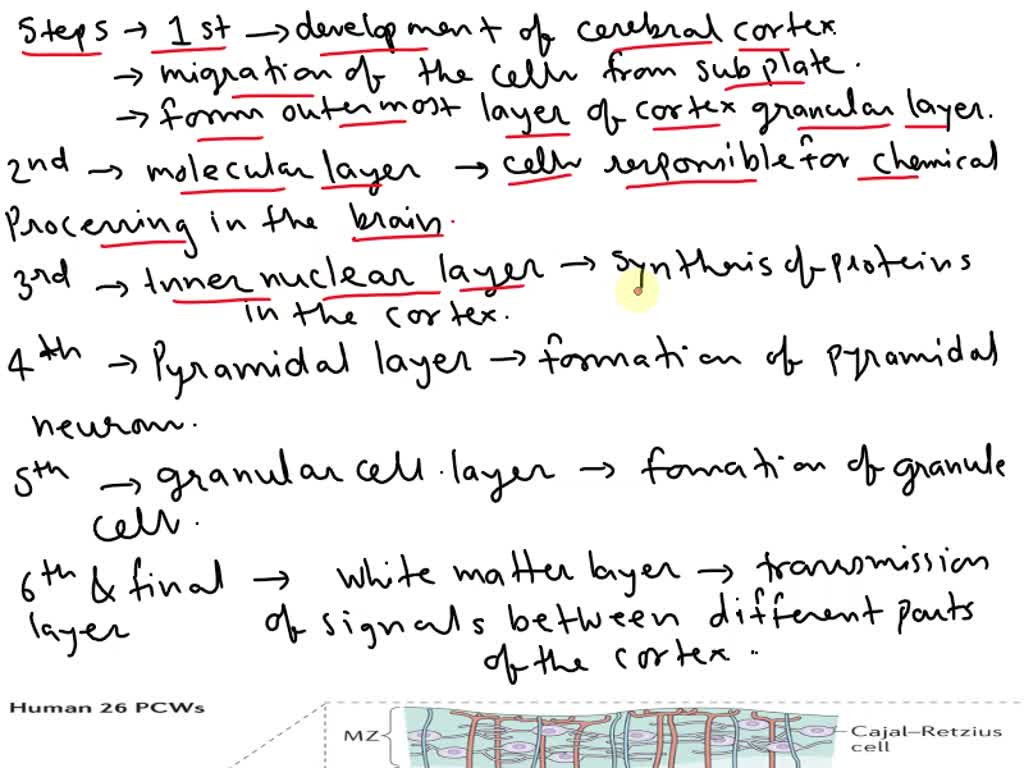 Steps → 1st → development of cerebral cortex.
→ migration of the cells from subplate.
→ form outermost layer of cortex granular layer.
2nd → molecular layer → cells responsible for chemical
Processing in the brain.
3rd → Inner nuclear layer → synthesis of proteins
in the cortex.
4th → Pyramidal layer → formation of pyramidal
neuron.
5th → granular cell layer → fomation of granule
cell.
6th & final → white matter layer → transmission
layer of signals between different parts
of the cortex.
Human 26 PCWs
MZ
Cajal–Retzius
cell